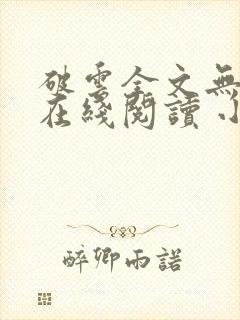 破雲全文無
在綫閱讀小
醉卿雨諾